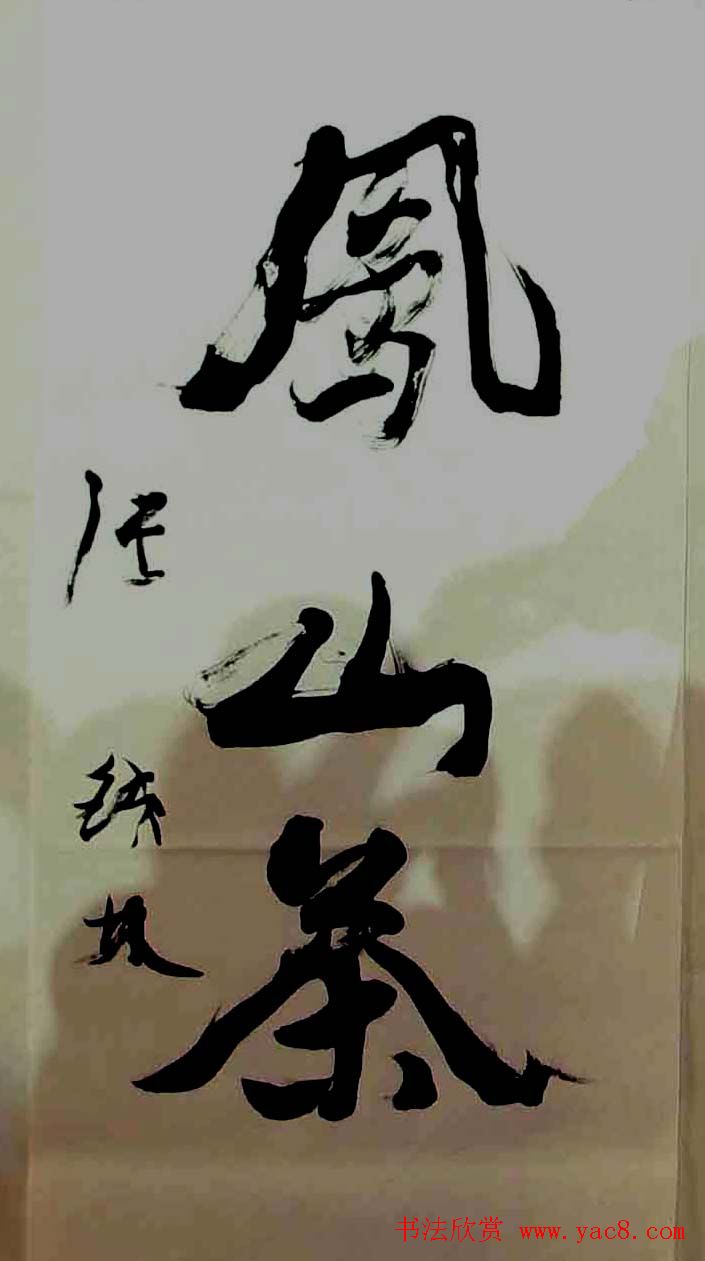 鳳山茶
书法欣赏 www.yac8.com